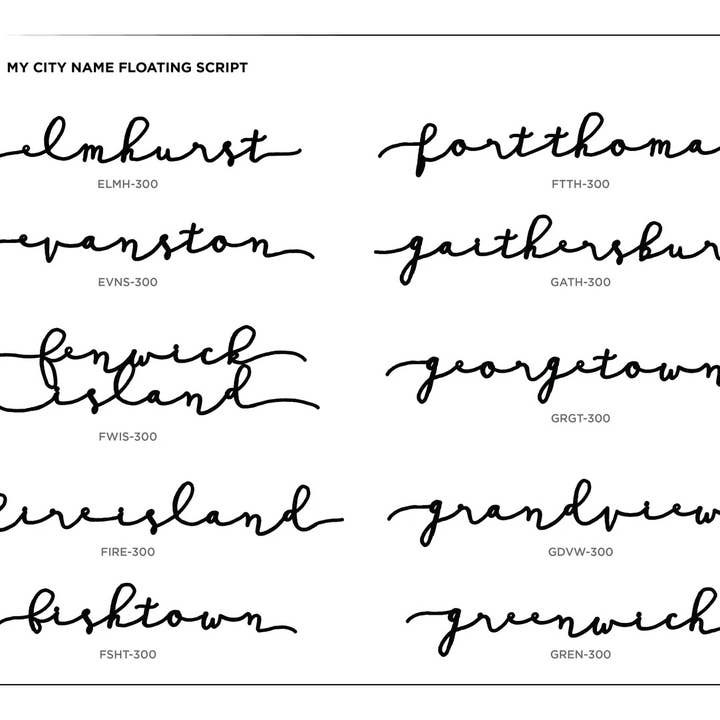 MY CITY NAME FLOATING SCRIPT
elmhurst
ELMH-300
evanston
EVNS-300
fenwick
island
FWIS-300
fireisland
FIRE-300
fishtown
FSHT-300
fortthoma
FTTH-300
gaithersbur
GATH-300
georgetown
GRGT-300
grandview
GDVW-300
greenwich
GREN-300